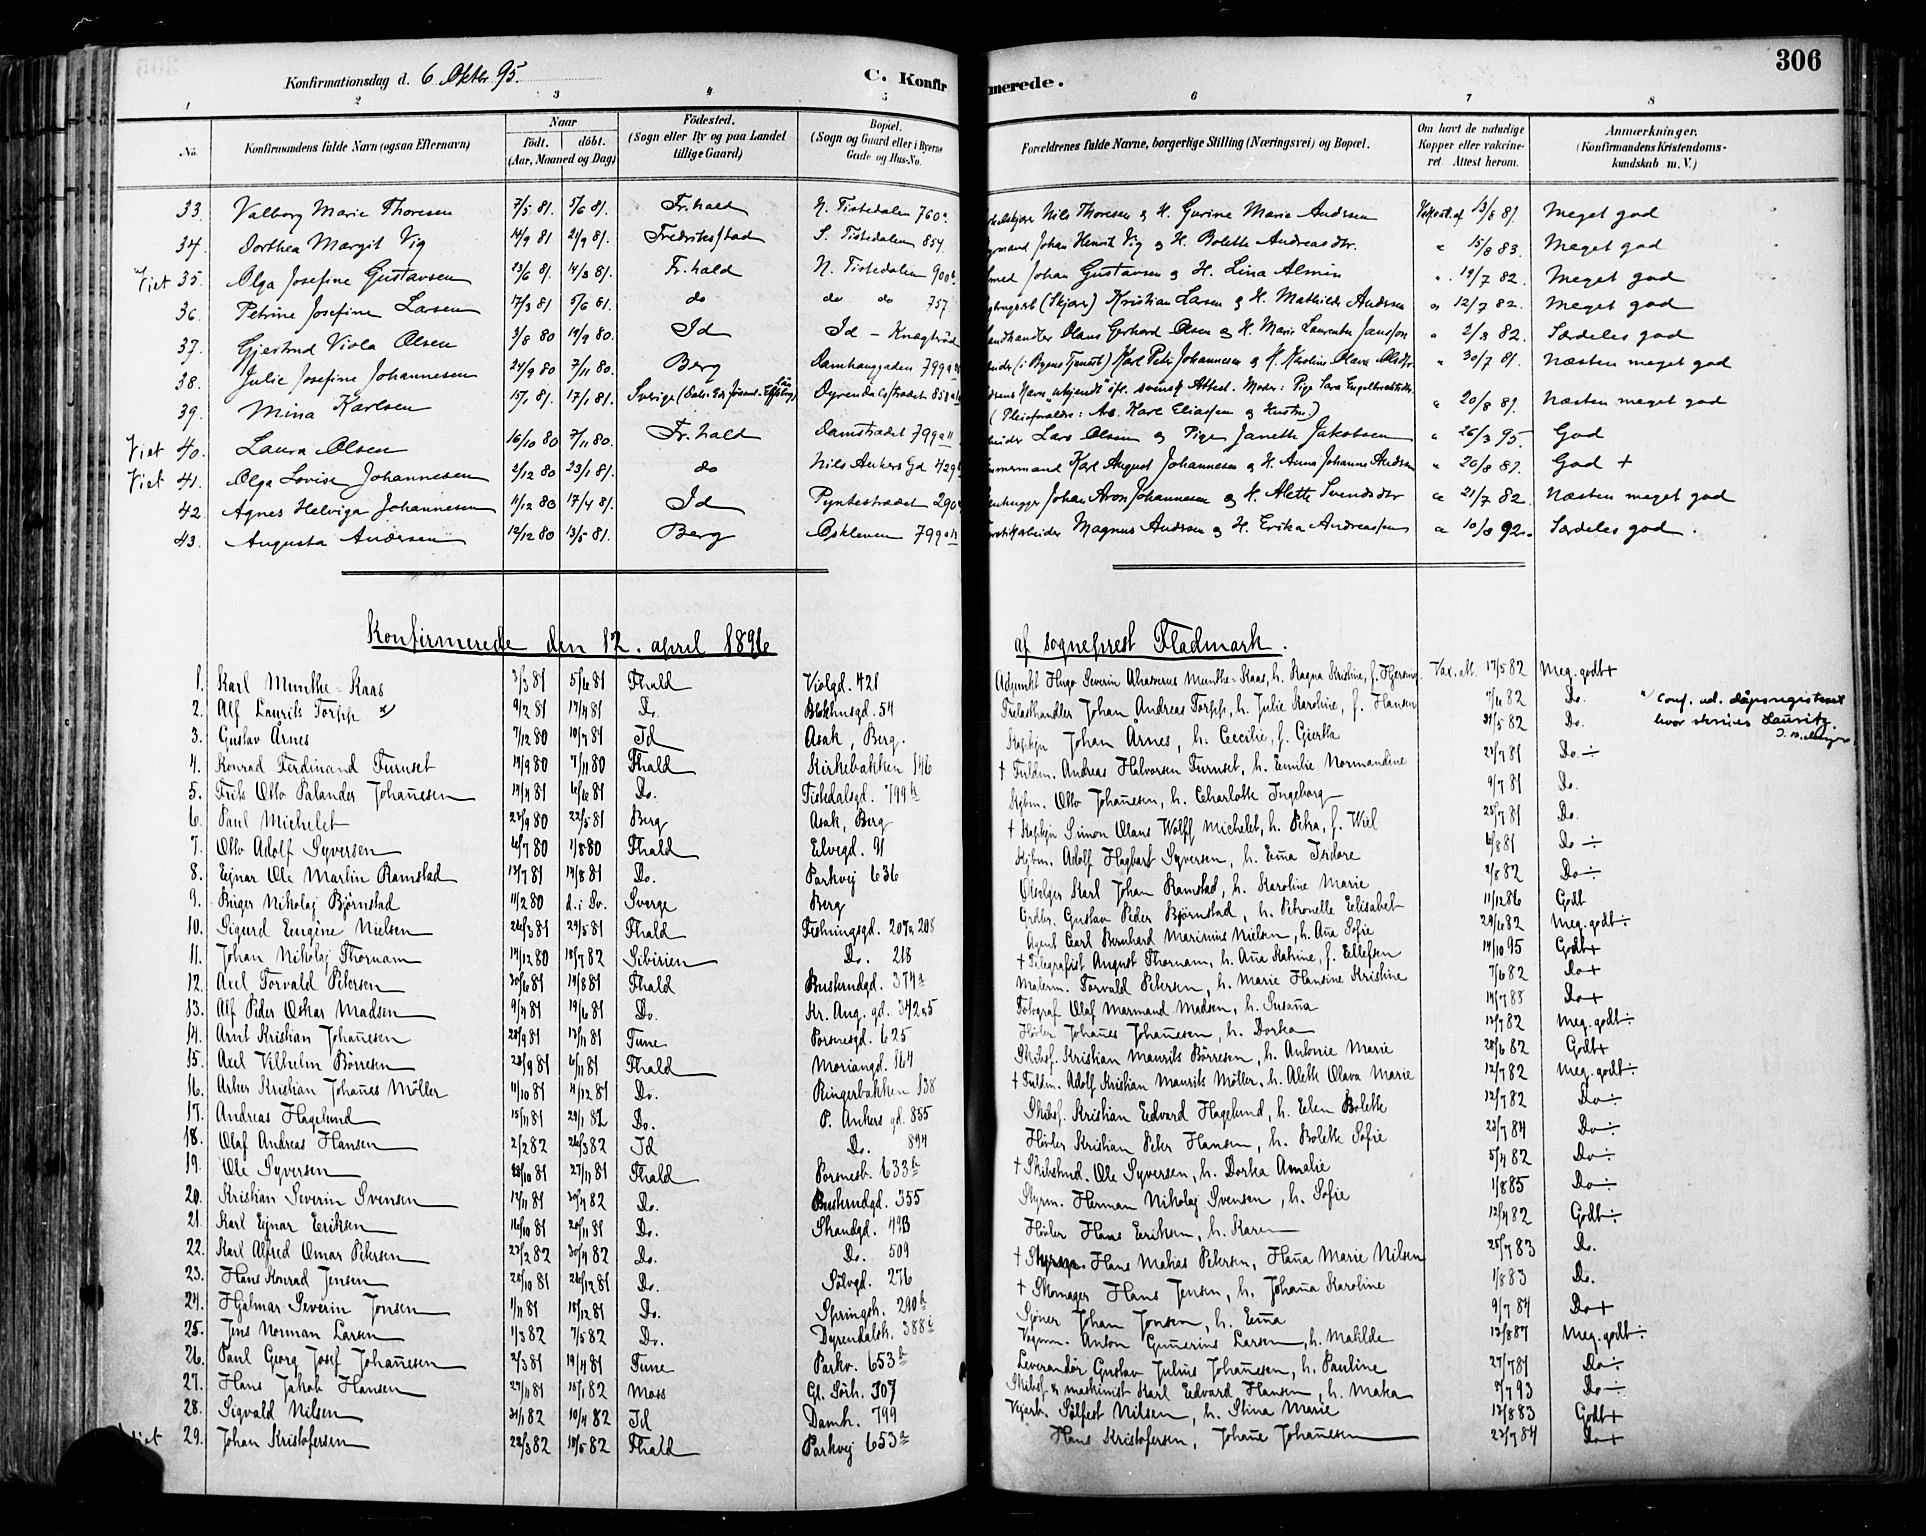 306
Konfirmationsdag d. 6 Oktbr. 95.
C. Konfirmerede.
1 2 3 4 5 6 7 8
No. Konfirmandens fulde Navn (ogsaa Efternavn) Naar födt. döbt. (Aar, Maaned og Dag) Födested. (Sogn eller By og paa Landet tillige Gaard) Bopæl. (Sogn og Gaard eller i Byerne Gade og Hus-No. Forældrenes fulde Navne, borgerlige Stilling (Næringsvei) og Bopæl. Om havt de naturlige Kopper eller vakcineret. Attest herom. Anmærkninger. (Konfirmandens Kristendomskundskab m. V.)
33. Valborg Marie Thoresen 7/5 81. 5/6 81. Fr.hald N. Tistedalen 760a Nils Thoresen og H. Gurine Marie Andersen Vakst. af 13/8 81. Meget god
34. Dorthea Margit Vig 14/9 81 2/9 81. Fredriksstad S. Tistedalen 854 Johan Henrik Vig og H. Bolette Andreasdtr. " 15/8 83. Meget god
Viet 35. Olga Josefine Gustavsen 23/6 81. 14/8 81. Fr.hald N. Tistedalen 900 Johan Gustavsen og H. Lina Almin " 19/7 82. Meget god
36. Petrine Josefine Larsen 17/3 81 5/6 81. do do do 757 (Skjær) Kristian Larsen og H. Mathilde Andersen " 12/7 82. Meget god
37. Gjertrud Viola Olsen 3/8 80 19/9 80. Id Id - Knagtröd Landhandler Olaus Gerhard Olsen og H. Marie Laurentse Jansson " 2/8 82. Særdeles god
38. Julie Josefine Johannesen 24/9 80 7/11 80. Berg Damhaugaden 799a (i Byens Tjeneste) Karl Petr. Johannesen og H. Karoline Olava Olsdtr " 30/7 81. Næsten meget god
39. Mina Karlsen 15/1 81. 17/1 81. Sverige Dyrendalsstrædet 858 Navn "ukjendt" ifl. svensk Attest. Moder: Pige Sara Engelbrektsdtr. (Pleieforældre: Arb. Karl Eliassen og Hustru) " 20/8 81. Næsten meget god
Viet 40. Laura Olsen 16/10 80 7/11 80. Fr.hald Damstrædet 799a11 Lars Olsen og Pige Janette Jakobsen " 26/3 95. God
Viet 41. Olga Lovise Johannesen 2/12 80 23/1 81. do Nils Ankers Gd 429 Karl August Johannesen og H. Anna Johanne Andersen " 20/8 81. God +
42. Agnes Helviga Johannesen 11/12 80 17/4 81. Id Pyntestrædet 290 Johan Aron Johannesen og H. Alette Svendsdtr " 21/7 82. Næsten meget god
43. Augusta Andersen 12/12 80 13/5 81. Berg Oskleven 799a Magnus Andersen og H. Erika Andreassen " 10/8 92. Særdeles god.
Konfirmerede den 12. april 1896 af sogneprest Fladmark.
1. Karl Munthe-Kaas 3/3 81 5/6 81 Fhald Violgd. 421 Adjunkt Hugo Severin Ahasverus Munthe-Kaas, h. Ragna Kristine, f. Hjersing Vax. att. 17/5 82 Meg. godt+
2. Alf Laurits Torpp x) 9/2 81 17/4 81 Do. Blokhusgd. 54 Trelasthandler Johan Andreas Torpp, h. Julie Karoline, f. Hansen 7/6 82 Do. x) Conf. ud. dåpsregisteret hvor skrives Lauritz.
3. Gustav Årnes 7/12 80 10/7 81 Id Asak, Berg. Kaptejn Johan Årnes, h. Cecilie, f. Gjertha 31/5 82 Do.
4. Konrad Ferdinand Furuset 19/9 80 7/11 80 Fhald Kirkebakken 146 + Fuldm. Andreas Halvorsen Furuset, h. Emilie Normandine 23/7 81 Do ÷
5. Frits Otto Palander Johañesen 14/4 81 6/6 81 Do. Tistedalsgd. 799k Skjbm. Otto Johañesen, h. Charlotte Ingeborg 9/7 81 Do.
6. Paul Michelet 23/9 80 22/5 81 Berg Asak, Berg + Kaptejn Simon Olaus Wolff Michelet, h. Petra, f. Wiel 25/7 81 Do.
7. Otto Adolf Syversen 6/7 80 1/8 80 Fhald Elvegd. 91 Skjbm. Adolf Hagbart Syversen, h. Em̃a Isidore 6/8 81 Do ÷
8. Ejnar Ole Martin Ramstad 13/7 81 14/8 81 Do. Parkvej 636 Ølsælger Karl Johan Ramstad, h. Karoline Marie 2/8 82 Do ÷
9. Birger Nikolaj Bjørnstad 11/2 80 d. i Sv. Sverge Berg Grdbr. Gustav Peder Bjørnstad, h. Petronelle Elisabet 11/12 86 Godt
10. Sigurd Eugène Nielsen 26/3 81 29/5 81 Fhald Fæstningsgd. 207a 208 Agent Carl Bernhard Marinius Nielsen, h. Añа Sofie 29/6 82 Meg. godt ÷
11. Johan Nikolaj Thornam 14/12 80 18/7 82 Sibirien Do. 218 + Telegrafist August Thornam, h. Aña Katrine, f. Ellefsen 14/10 95 Godt+
12. Axel Torvald Petersen 30/6 81 14/8 81 Fhald Buskrudgd. 374a Malerm. Torvald Petersen, h. Marie Hansine Kristine 7/6 82 Do+
13. Alf Peder Oskar Madsen 9/4 81 19/6 81 Do. Kr. Aug. gd. 342a5 Fotograf Olaf Marmand Madsen, h. Susaña 14/7 88 Do+
14. Arnt Kristian Johañesen 28/9 81 13/11 81 Tune Porsnesgd. 625 Høvler Johañes Johañesen, h. Dorka 12/7 82 Meg. godt ÷
15. Axel Vilhelm Børresen 23/9 81 6/11 81 Fhald Moriangd. 164 Skibsf. Kristian Maurits Børresen, h. Antonie Marie 28/6 82 Godt+
16. Arthur Kristian Johañes Möller 11/10 81 4/12 81 Do. Ringerbakken 138 + Fuldm. Adolf Kristian Maurits Möller, h. Alette Olava Marie 12/7 82 Meg. godt ÷
17. Andreas Hagelund 15/11 81 29/1 82 Do. P. Ankers gd. 855 Skibsf. Kristian Edvard Hagelund, h. Elen Bolette 12/7 82 Do ÷
18. Olaf Andreas Hansen 2/2 82 26/3 82 Id Do. 894 Høvler Kristian Peter Hansen, h. Bolette Sofie 23/7 84 Do ÷
19. Ole Syversen 23/10 81 27/11 81 Fhald Porsnesb. 633b + Skibstmd. Ole Syversen, h. Dorka Amalie 5/4 82 Do ÷
20. Kristian Severin Svensen 12/11 81 30/7 82 Do. Buskrudgd. 355 Styrm. Herman Nikolaj Svensen, h. Sofie 1/8 85 Do ÷
21. Karl Ejnar Eriksen 16/10 81 20/11 81 Do. Strandgd. 49B Høvler Hans Eriksen, h. Karen 12/4 82 Godt ÷
22. Karl Alfred Omar Petersen 23/2 82 30/4 82 Do. Do. 509 + Hans Matias Petersen, Haña Marie Nilsen 25/7 83 Do.
23. Hans Konrad Jensen 25/10 81 26/12 81 Do. Sølvgd. 276 + Skomager Hans Jensen, h. Johaña Karoline 1/8 83 Do.
24. Hjalmar Severin Jonsen 1/11 81 18/12 81 Do. Springstr. 290b Sjöner Johan Jonsen, h. Em̃a 9/7 84 Do+
25. Jens Norman Larsen 1/3 82 7/5 82 Do. Dyrendalstr. 388a Vognm. Anton Guñerius Larsen, h. Matilde 13/8 87 Meg. godt ÷
26. Paul Georg Josef Johañesen 2/3 81 19/4 81 Tune Parkv. 653b Leverandør Gustav Julius Johañesen, h. Pauline 27/7 81 Do ÷
27. Hans Jakob Hansen 27/11 81 15/1 82 Moss Gl. Sörh. 307 Skibsf. & maskinist Karl Edvard Hansen, h. Maka 7/7 93 Do ÷
28. Sigvald Nilsen 31/1 82 10/4 82 Id Damh. 799 Kjørh. Sølfest Nilsen, h. Stina Marie 13/8 83 Godt+
viet 29. Johan Kristofersen 22/3 82 18/5 82 Fhald Parkvej 653a Hans Kristofersen, Johañe Johañesen 23/7 84 Do+